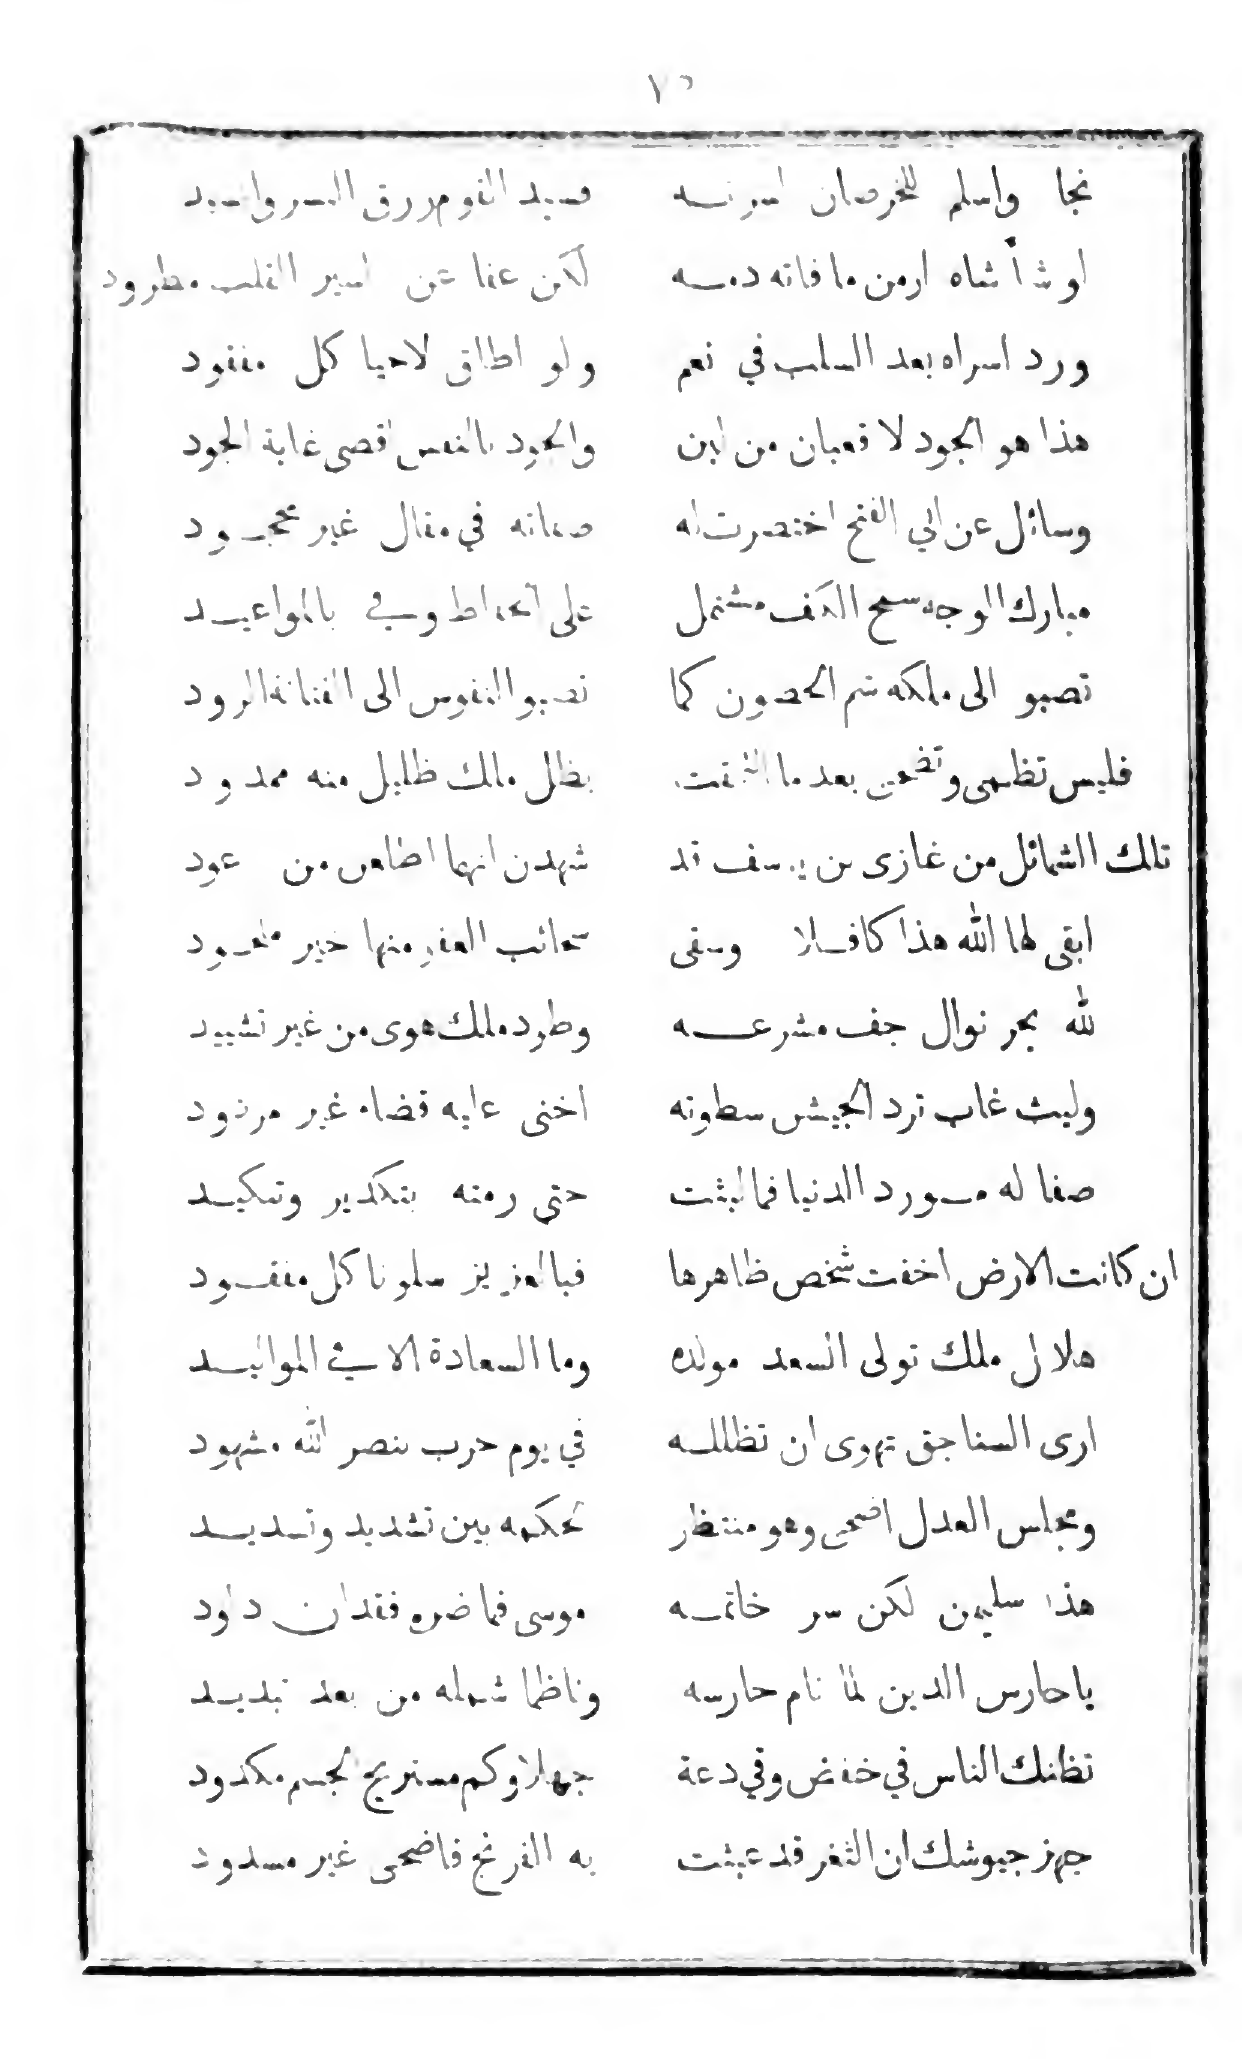 ٧٥
نجا واسلم للخرصان اسرته فصيد القوم زرق السمر والبيد
او شاء شاه ارمن ما فاته دمه لكن عفا عن اسير القلب مطرود
ورد اسراه بعد السلب في نعم ولو اطاق لاحيا كل مفقود
هذا هو الجود لا قعبان من لبن والجود بالنفس اقصى غاية الجود
وسائل عن ابي الفتح اختصرت له صفاته في مقال غير مجحود
مبارك الوجه سمح الكف مشتمل على احتياط وفي بالمواعيد
تصبو الى ملكه شم الحصون كما تصبو النفوس الى الفتانة الرود
فليس تظمى وتضحى بعد ما التحفت بظل ملك ظليل منه ممدود
تلك الشمائل من غازى بن يوسف قد شهدن انهما اطلعن من عود
ابقى لها الله هذا كافلا وسقى سحائب العفو منها خير ملحود
لله بحر نوال جف مشرعه وطود ملك هوى من غير تشييد
وليث غاب ترد الجيش سطوته اخنى عليه قضاء غير مردود
صفا له مورد الدنيا فما لبثت حتى رمته بتكدير وتنكيد
ان كانت الارض اخفت شخص ظاهرها فبالعزيز سلونا كل مفقود
هلال ملك تولى السعد مولده وما السعادة الا في المواليد
ارى السناجق تهوى ان تظلله في يوم حرب بنصر الله مشهود
ومجلس العدل اضحى وهو منتظر تحكمه بين تشديد وتسديد
هذا سليمن لكن سر خاتمه موسى فما ضره فقدان داود
يا حارس الدين لما نام حارسه وناظما شمله من بعد تبديد
تظنك الناس في خفض وفي دعة جهلا وكم مستريح الجسم مكدود
جهز جيوشك ان الثغر قد عبثت به الفرنج فاضحى غير مسدود